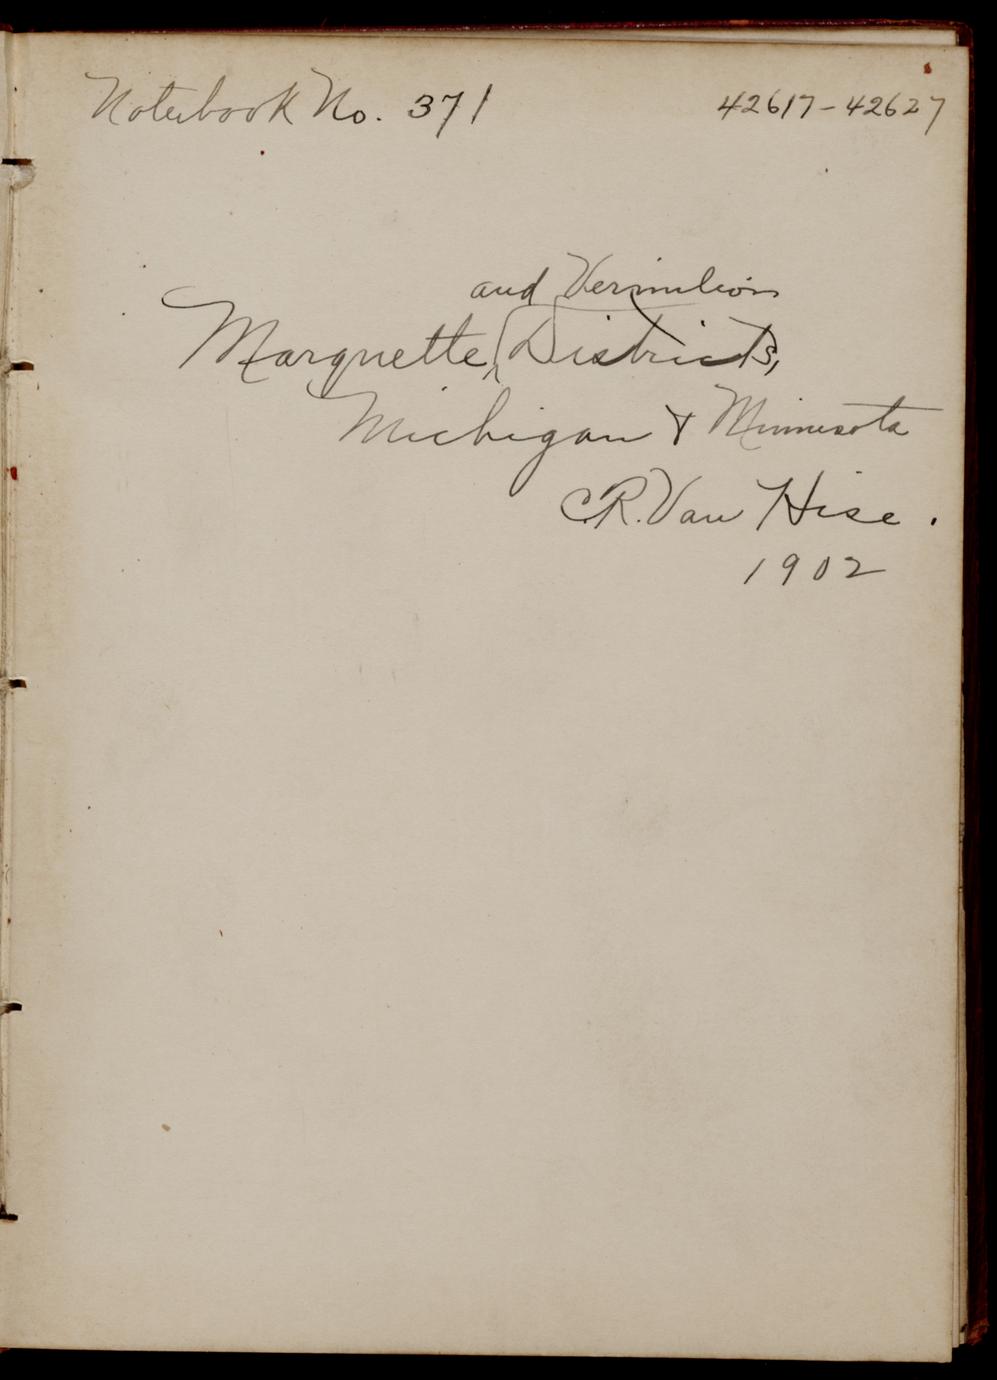 Notebook No. 371 42617-42627
and Vermilion
Marquette Districts,
Michigan & Minnesota
C.R. Van Hise.
1902